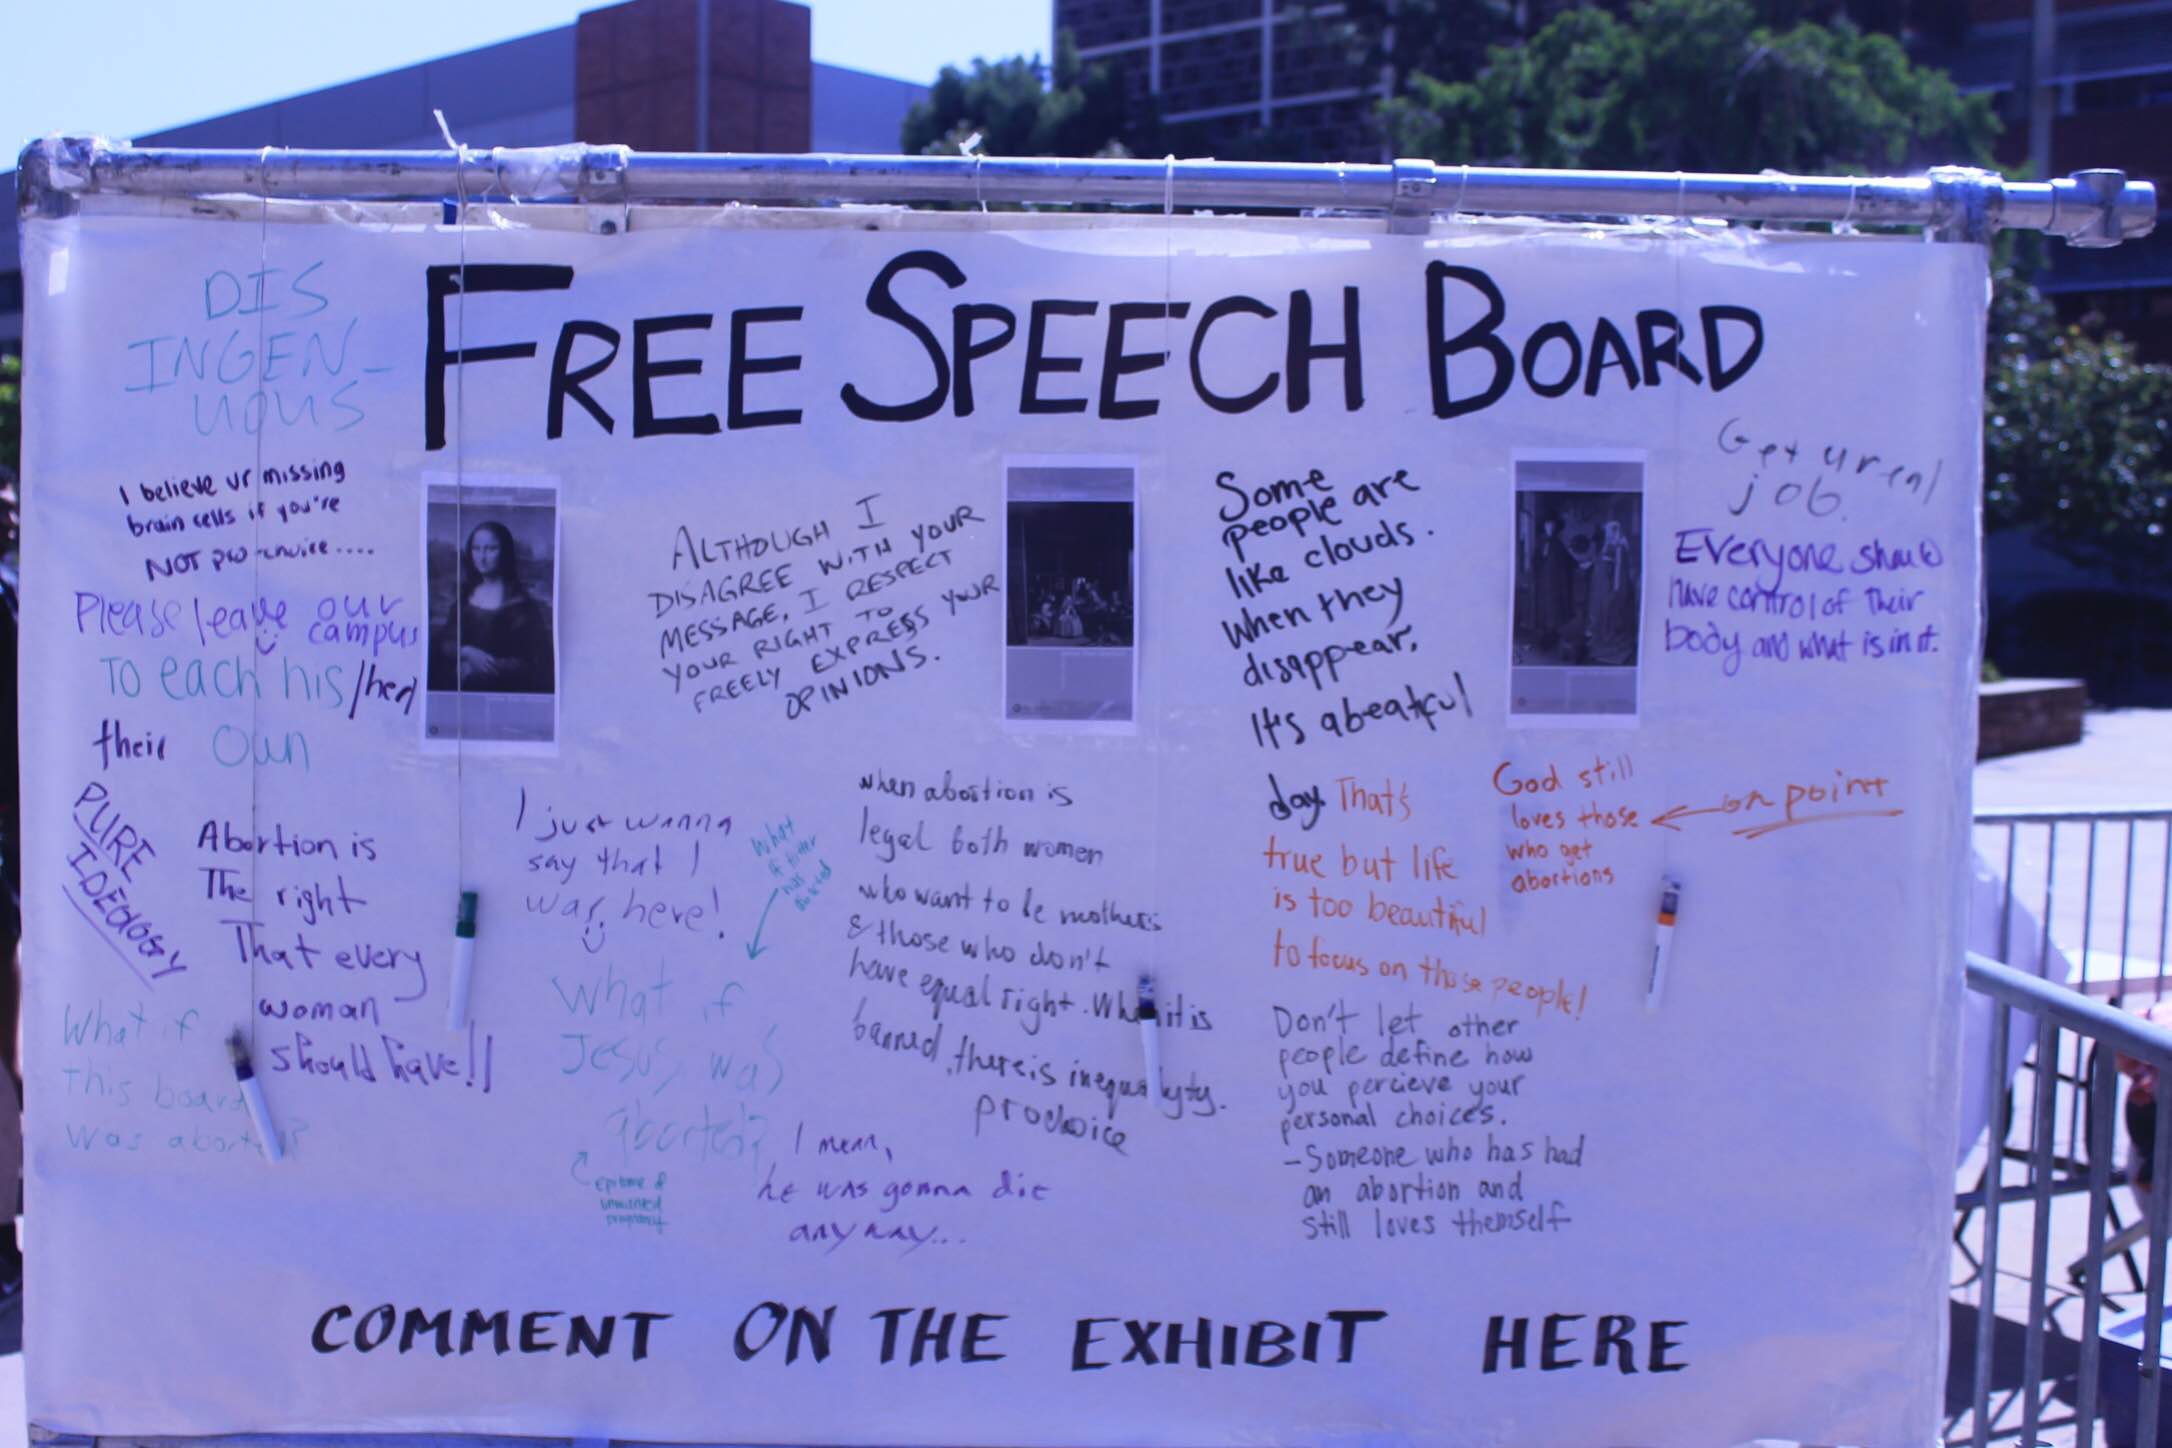 FREE SPEECH BOARD
DIS
INGEN-
UOUS
I believe ur missing
brain cells if you're
NOT pro-choice....
Please leave our
campus
To each his/her/
their own
PURE
IDEOLOGY
Abortion is
The right
That every
woman
should have!!
What if
this board
was aborted?
ALTHOUGH I
DISAGREE WITH YOUR
MESSAGE, I RESPECT
YOUR RIGHT TO
FREELY EXPRESS YOUR
OPINIONS.
I just wanna
say that I
was here!
What
if
was
What if
Jesus was
aborted?
epitome of
unwanted
pregnancy
I mean,
he was gonna die
anyway...
when abortion is
legal both women
who want to be mothers
& those who don't
have equal right. When it is
banned, there is inequalyty.
prochoice
Some
people are
like clouds.
When they
disappear,
It's a beatful
day. That's
true but life
is too beautiful
to focus on those people!
Don't let other
people define how
you percieve your
personal choices.
-Someone who has had
an abortion and
still loves themself
God still
loves those
who get
abortions
on point
Get a real
job.
Everyone should
have control of their
body and what is in it.
COMMENT ON THE EXHIBIT HERE